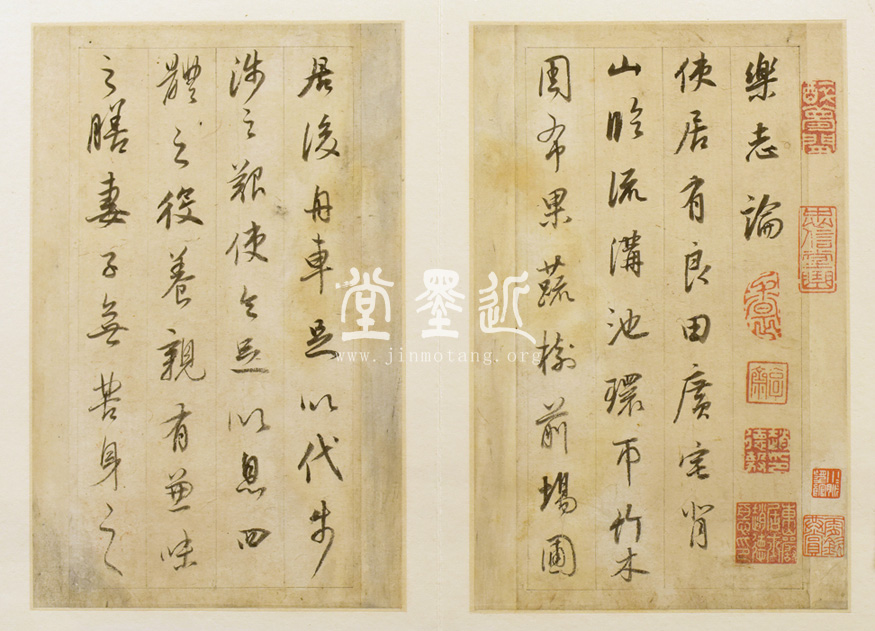 樂志論
使居有良田廣宅背
山臨流溝池環帀竹木
周布果蔬樹前場圃
居後舟車足以代步
涉之艱使令足以息四
體之役養親有兼味
之膳妻子無苦身之
近墨堂
www.jinmotang.org